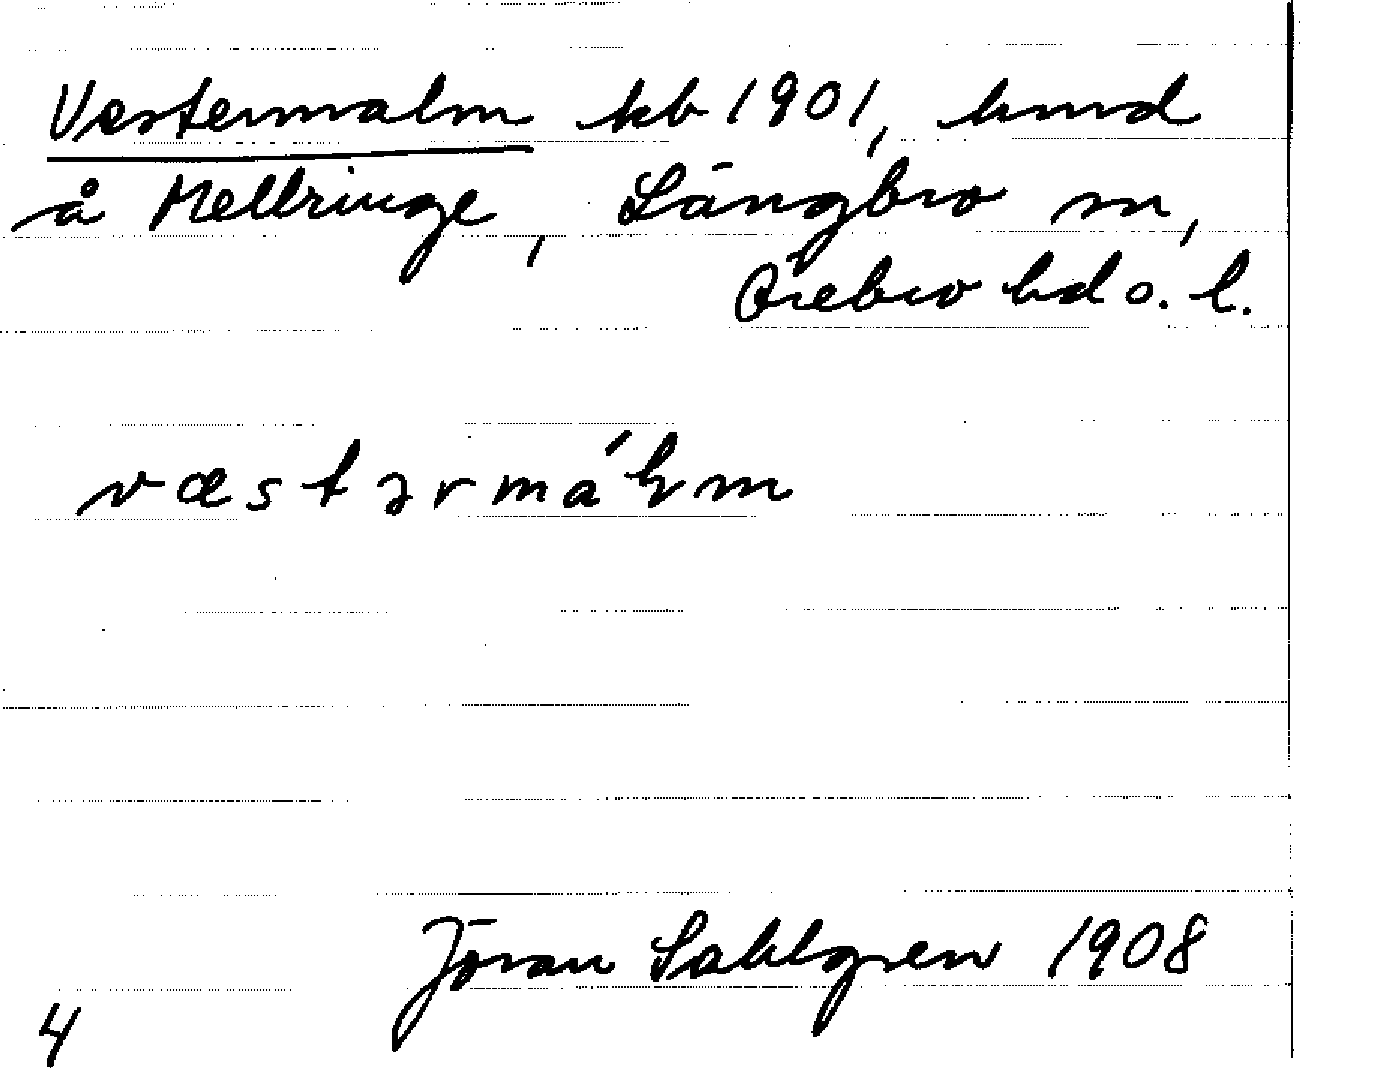 Vestermalm kb 1901, hmd
å Mellringe, Längbro sn,
Örebro hd o. l.
væstərmáḷm
Jöran Sahlgren 1908
4